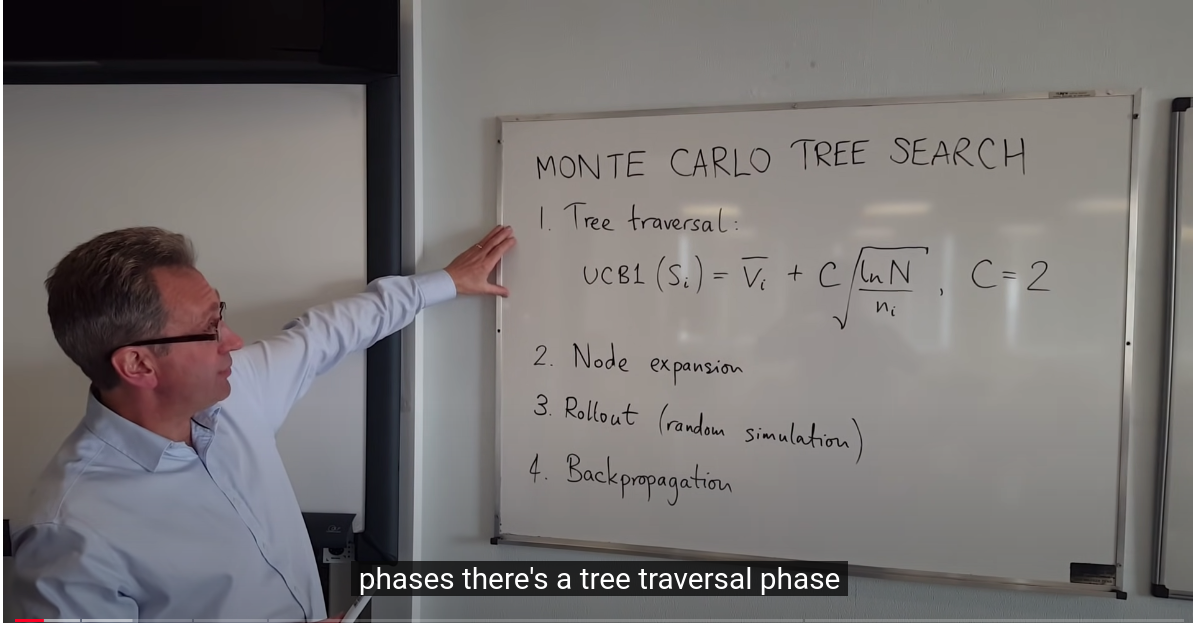 MONTE CARLO TREE SEARCH
1. Tree traversal:
UCB1 (Si) = V̅i + C √(ln N / ni) , C = 2
2. Node expansion
3. Rollout (random simulation)
4. Backpropagation
phases there's a tree traversal phase